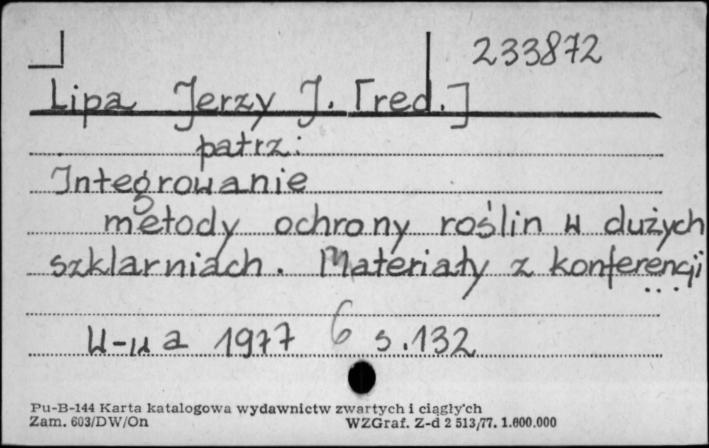 233872
Lipa Jerzy J. [red.]
patrz:
Integrowanie
metody ochrony roślin w dużych
szklarniach. Materiały z konferencji
...
W-wa 1977 6 s.132
Pu-B-144 Karta katalogowa wydawnictw zwartych i ciągłych
Zam. 603/DW/On WZGraf. Z-d 2 513/77. 1.000.000